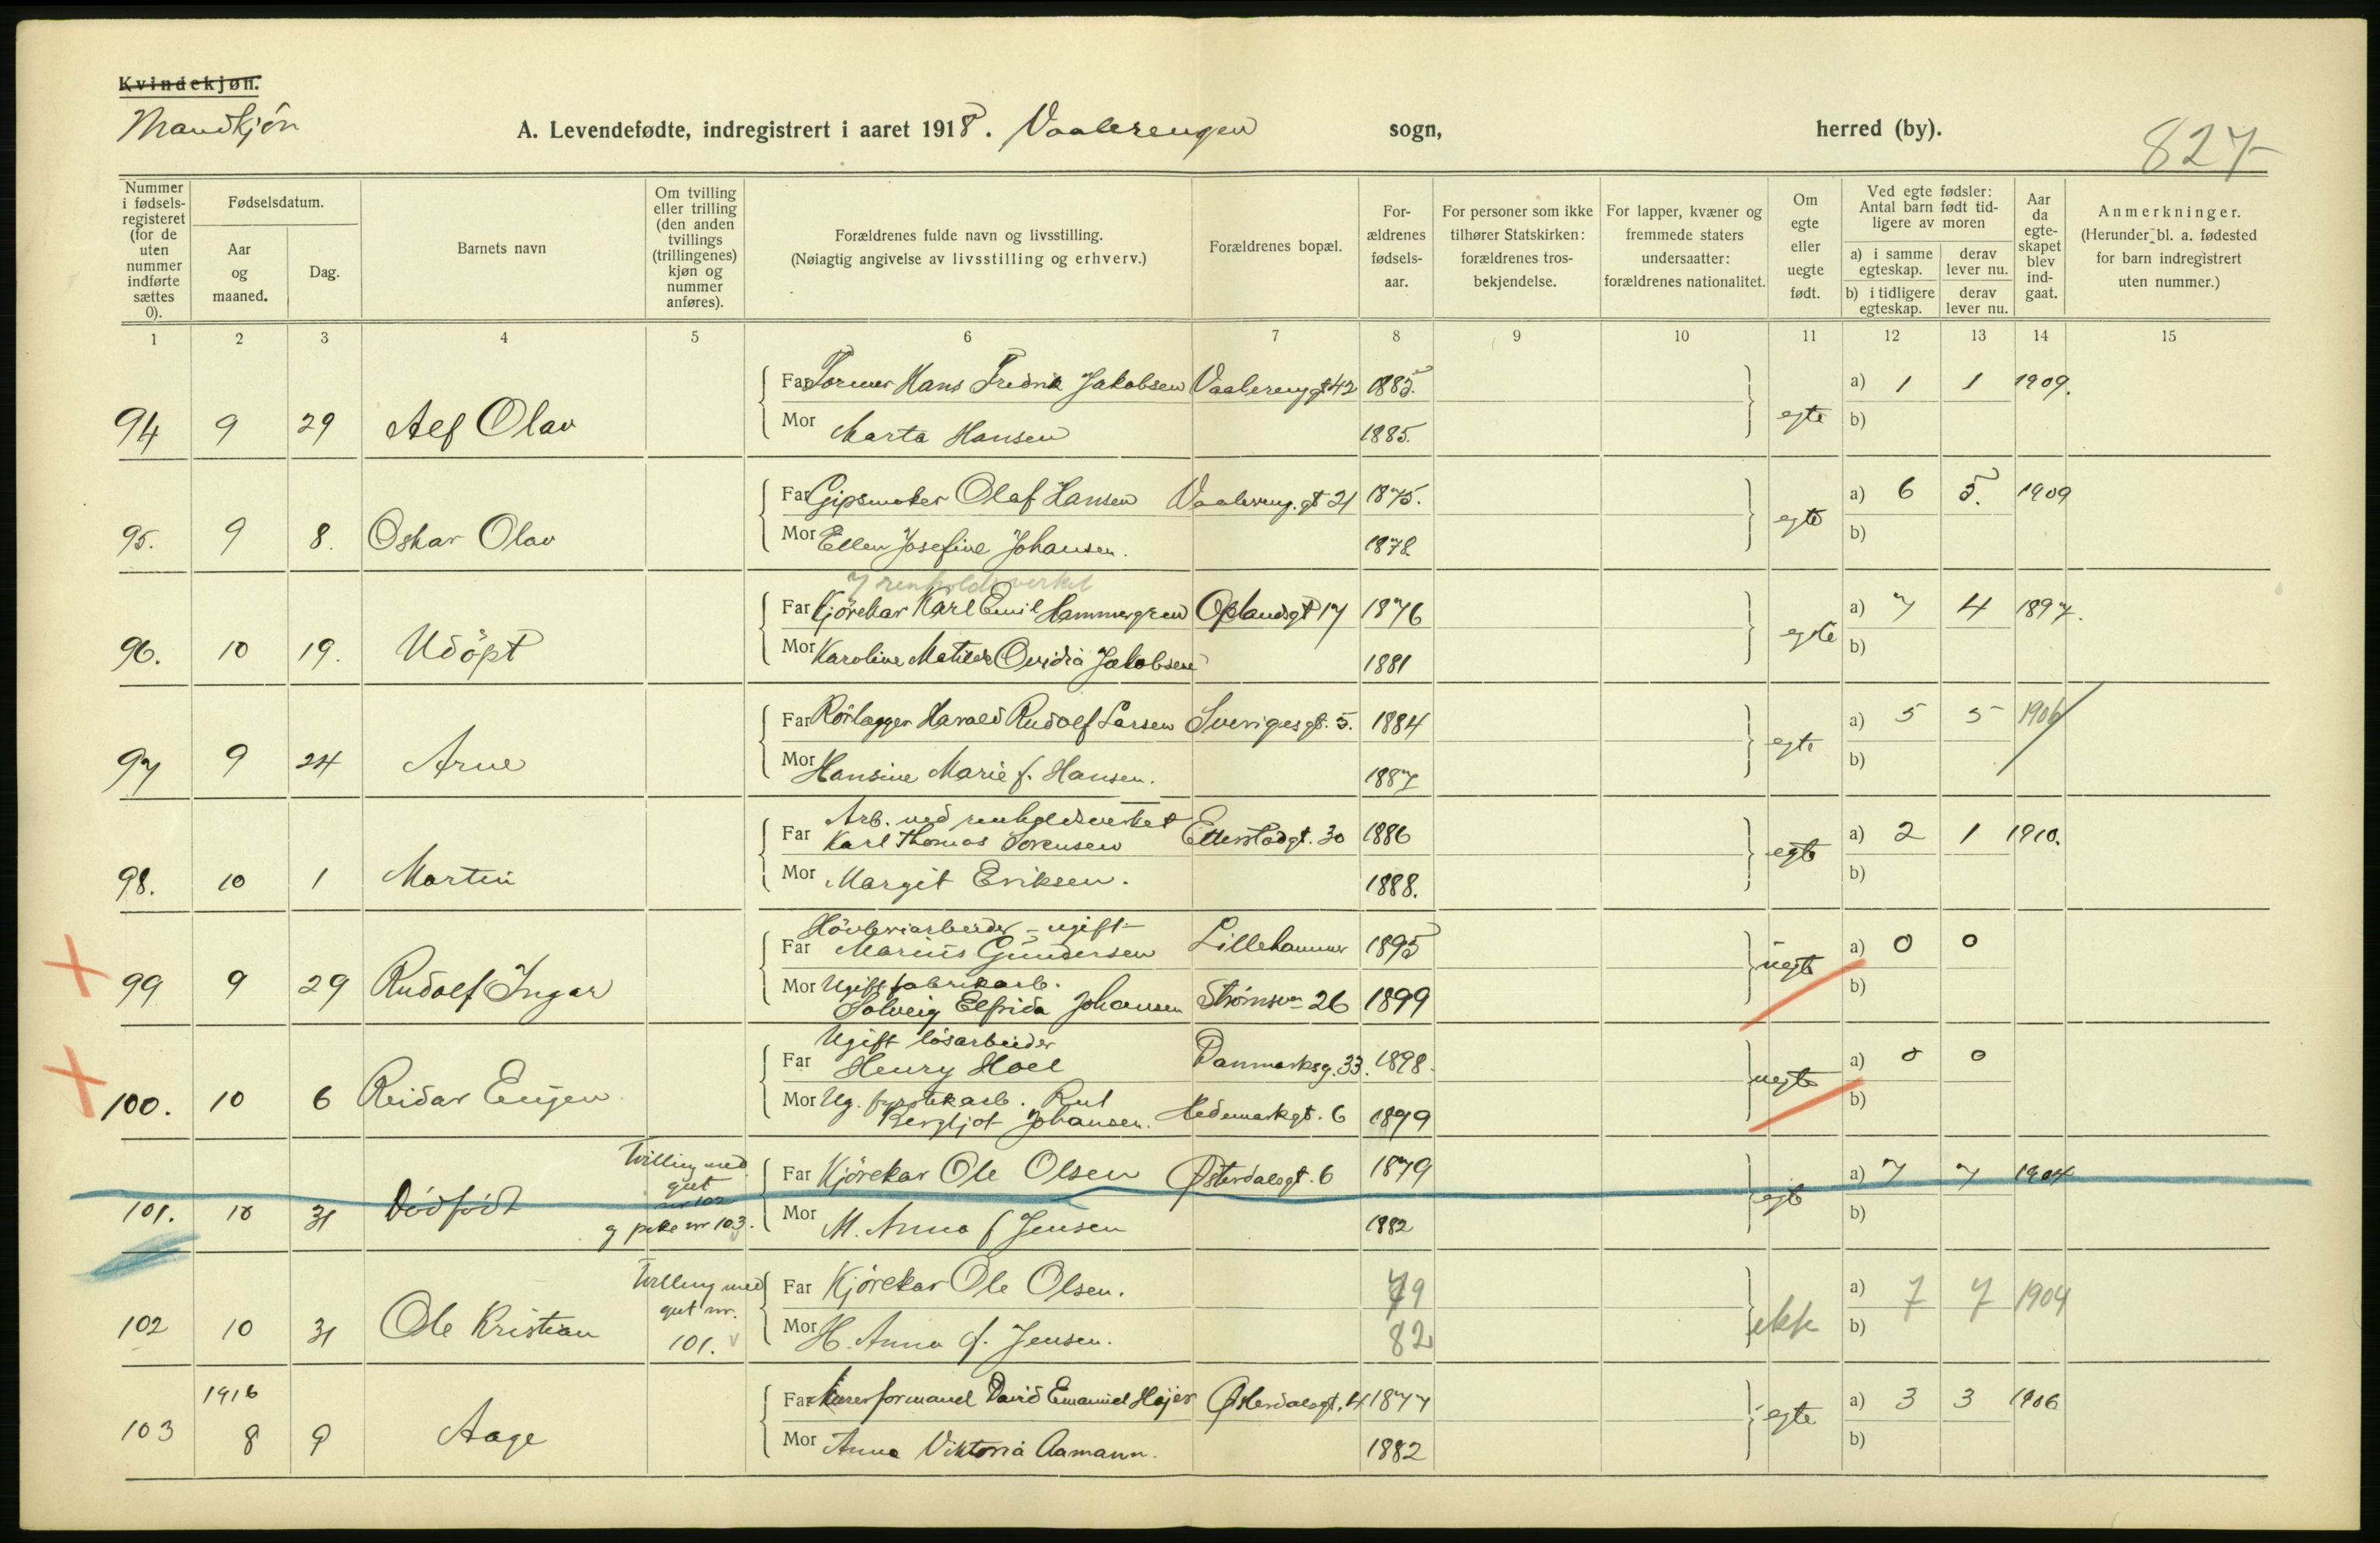 Kvindekjøn.
Mandkjøn
A. Levendefødte, indregistrert i aaret 1918. Vaalerengen sogn, herred (by).
827
Nummer i fødsels-registeret (for de uten nummer indførte sættes 0).
Fødselsdatum.
Aar og maaned.
Dag.
Barnets navn
Om tvilling eller trilling (den anden tvillings (trillingenes) kjøn og nummer anføres).
Forældrenes fulde navn og livsstilling.
(Nøiagtig angivelse av livsstilling og erhverv.)
Forældrenes bopæl.
For-ældrenes fødsels-aar.
For personer som ikke tilhører Statskirken: forældrenes tros-bekjendelse.
For lapper, kvæner og fremmede staters undersaatter: forældrenes nationalitet.
Om egte eller uegte født.
Ved egte fødsler: Antal barn født tid-ligere av moren
a) i samme egteskap.
derav lever nu.
b) i tidligere egteskap.
derav lever nu.
Aar da egte-skapet blev ind-gaat.
Anmerkninger.
(Herunder bl. a. fødested for barn indregistrert uten nummer.)
1 2 3 4 5 6 7 8 9 10 11 12 13 14 15
Far Former Hans Fredrik Jakobsen Vaalereng gt 42 1885. a) 1 1 1909.
94 9 29 Alf Olav Mor Marta Hansen 1885. egte b)
Far Gipsmaker Olaf Hansen Vaalereng. gt 21 1875. a) 6 5. 1909
95. 9 8. Oskar Olav Mor Ellen Josefine Johansen. 1878. egte b)
I renholdsverket
Far Kjørekar Karl Emil Hammergren Oplandsgt 17 1876 a) 7 4 1897.
96. 10 19. Udöpt Mor Karoline Matilde Ovidia Jakobsen 1881 egte b)
Far Rörlægger Harald Rudolf Larsen Sverigesgt. 5. 1884 a) 5 5 1906
97 9 24 Arne Mor Hansine Marie f. Hansen. 1887 egte b)
Arb. ved renholdsverket
Far Karl Thomas Sorensen Etterstadgt. 30 1886 a) 2 1 1910.
98. 10 1 Martin Mor Margit Eriksen. 1888. egte b)
Hövleriarbeider - ugift
Far Marius Gundersen Lillehammer 1895 a) 0 0
99 9 29 Rudolf Ingar Mor Ugift fabrikarb.
Solveig Elfrida Johansen Strømsv 26 1899 uegte b)
Ugift løsarbeider
Far Henry Hoel Danmarksg. 33. 1898. a) 0 0
100. 10 6 Reidar Eugen Mor Ug. fyrstikarb. Rut
Bergljot Johansen. Hedemarkgt. 6 1899 uegte b)
Tvilling med gut nr 102 og pike nr 103.
Far Kjörekar Ole Olsen Østerdalsgt. 6 1879 a) 7 7 1904
101. 10 31 Dödfödt Mor M. Anna f Jensen 1882 egte b)
Tvilling med gut nr. 101.
Far Kjörekar Ole Olsen. 79 a) 7 7 1904
102 10 31 Ole Kristian Mor H. Anna f. Jensen. 82 ekte b)
1916
Far Murerformand David Emanuel Højer Østerdalsgt. 4 1877 a) 3 3 1906
103 8 9 Aage Mor Anna Viktoria Aamann. 1882 egte b)